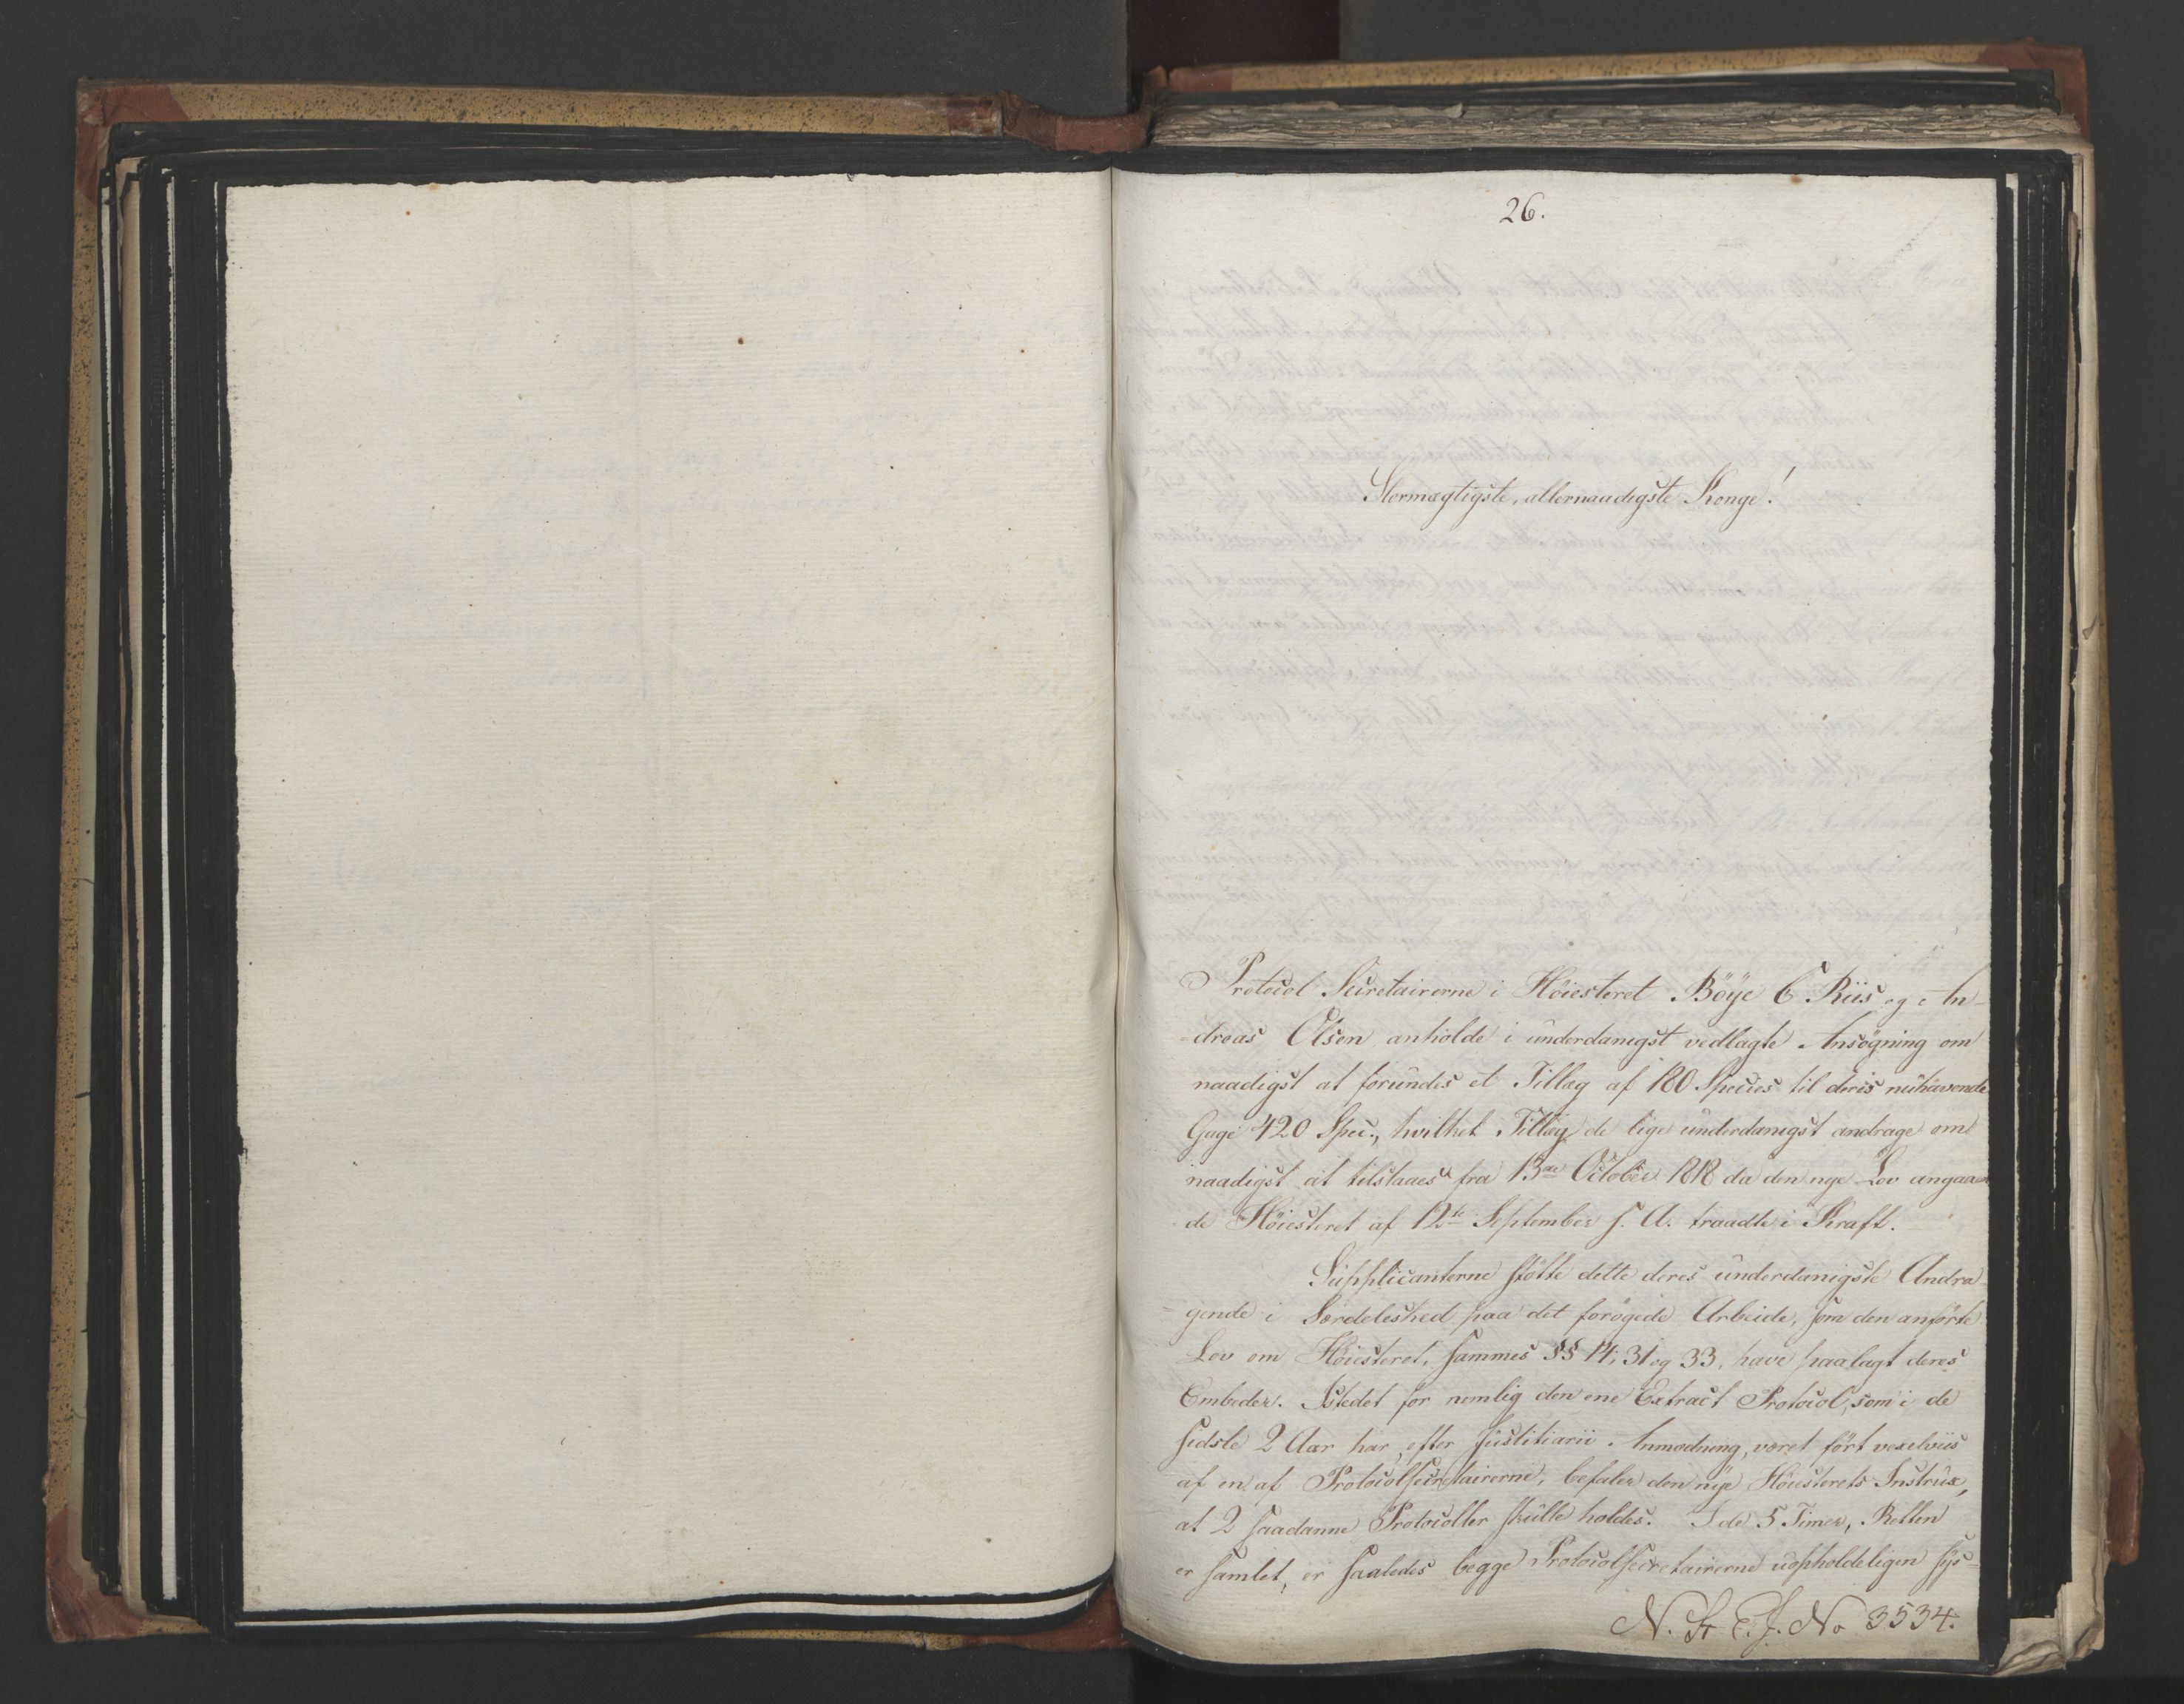 26.
Stormægtigste, allernaadigste Konge!
Protocol Secretairerne i Höiesteret Böye C Riis og An-
dreas Olsen anholde i underdanigst vedlagte Ansögning om
naadigst at forundes et Tillæg af 180 Species til deres nuhavende
Gage 420 Spec., hvilket Tillæg de lige underdanigst andrage om
naadigst at tilstaaes fra 13de October 1818 da den nye Lov angaaen
de Höiesteret af 12te September s. A. traadte i Kraft.
Supplicanterne stötte dette deres underdanigste Andra-
gende i Særdeleshed paa det forögede Arbeide, som den anförte
Lov om Höiesteret, sammes §§ 14, 31 og 33, have paalagt deres
Embeder. Istedet for nemlig den ene Extract Protocol, som i de
sidste 2 Aar har, efter Justitiarii Anmodning, været fört vexelviis
af en af Protocolsecretairerne, befaler den nye Höiesterets Instrux,
at 2 saadanne Protocoller skulle holdes. I de 5 Timer, Retten
er samlet, er saaledes begge Protocolsecretairerne uopholdeligen sys-
N. St. E. J. No 3534.